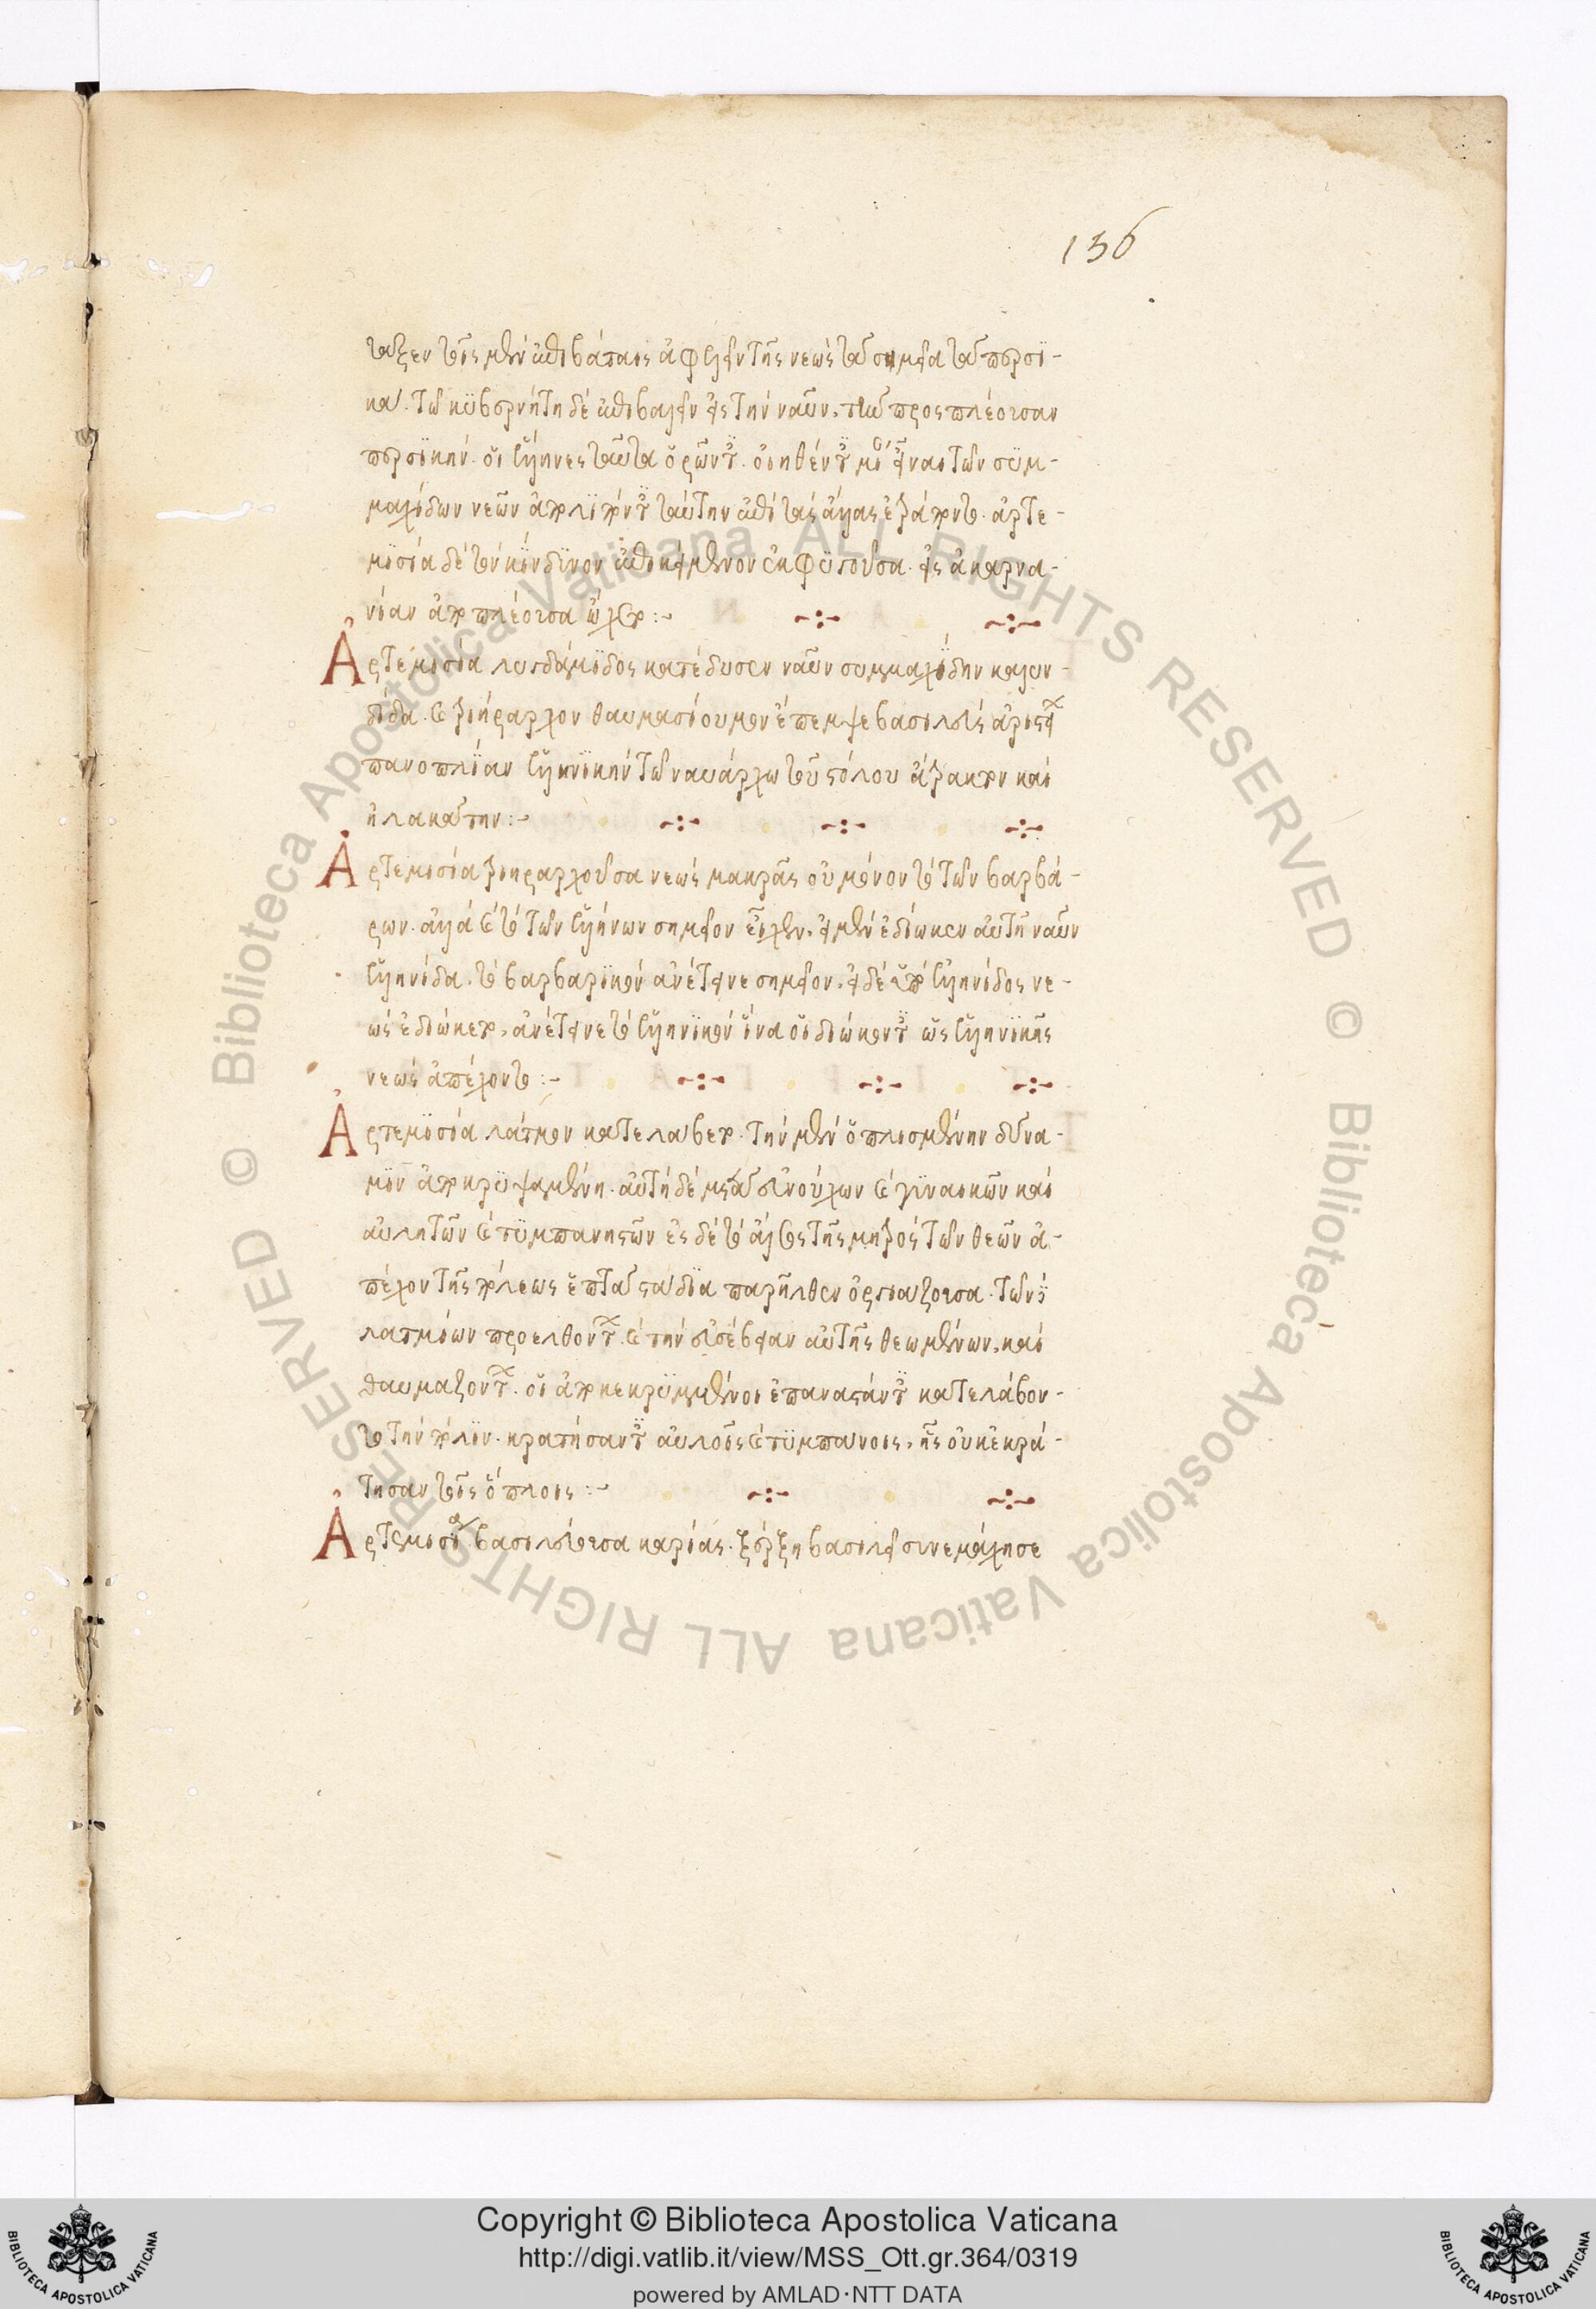 136
ταξεν τοῖς μὲν ἐπιβάταις ἀφελεῖν τῆς νεὼς τὰ σημεῖα τὰ περσι-
κά. τῶ κυβερνήτη δὲ ἐπιβαλεῖν εἰς τὴν ναῦν
περσικήν. οἱ ἕλληνες ταῦτα ὁρῶντες. οἰηθέντες μίαν εἶναι τῶν συμ-
μαχίδων νεῶν ἀπολιπόντες ταύτην ἐπὶ τὰς ἄλλας ἐτράποντο. ἀρτε-
μισία δὲ τὸν κίνδυνον ἐπικείμενον ἐκφυγοῦσα. εἰς ἀκαρνα-
νίαν ἀποπλέουσα ὤχετο :~
Ἀρτεμισία λυγδάμιδος κατέδυσεν ναῦν συμμαχίδην καλυν-
δίδα. καὶ τριήραρχον θαυμασίουμον ἔπεμψε βασιλεὺς ἀριστεῖα
πανοπλίαν ἑλληνικὴν τῶ ναυάρχω τοῦ στόλου ἄτρακτον καὶ
ἠλακάτην :~
Ἀρτεμισία τριηραρχοῦσα νεὼς μακρᾶς οὐ μόνον τὸ τῶν βαρβά-
ρων. ἀλλὰ καὶ τὸ τῶν ἑλλήνων σημεῖον εἶχεν. εἰ μὲν ἐδίωκεν αὐτὴ ναῦν
ἑλληνίδα. τὸ βαρβαρικὸν ἀνέτεινε σημεῖον. εἰ δὲ ὑπὸ ἑλληνίδος νε-
ὼς ἐδιώκετο, ἀνέτεινε τὸ ἑλληνικὸν ἵνα οἱ διώκοντες ὡς ἑλληνικῆς
νεὼς ἀπέχοντο :~
Ἀρτεμισία λάτμον κατελάβετο. τὴν μὲν ὁπλισμένην δύνα-
μιν ἀποκρυψαμένη. αὐτὴ δὲ μετὰ εὐνούχων καὶ γυναικῶν καὶ
αὐλητῶν καὶ τυμπανηστῶν ἐς δὲ τὸ ἄλσος τῆς μητρὸς τῶν θεῶν ἀ-
πέχον τῆς πόλεως ἑπτὰ στάδια παρῆλθεν ὀργιάζουσα. τῶν
λατμίων προελθόντων καὶ τὴν εὐσέβειαν αὐτῆς θεωμένων, καὶ
θαυμαζόντων. οἱ ἀποκεκρυμμένοι ἐπαναστάντες κατελάβον-
το τὴν πόλιν. κρατήσαντες αὐλοῖς καὶ τυμπάνοις, ἧς οὐκ ἐκρά-
τησαν τοῖς ὅπλοις :~
Ἀρτεμισία βασιλεύουσα καρίας. ξέρξη βασιλεῖ συνεμάχησε
Copyright © Biblioteca Apostolica Vaticana
http://digi.vatlib.it/view/MSS_Ott.gr.364/0319
powered by AMLAD·NTT DATA